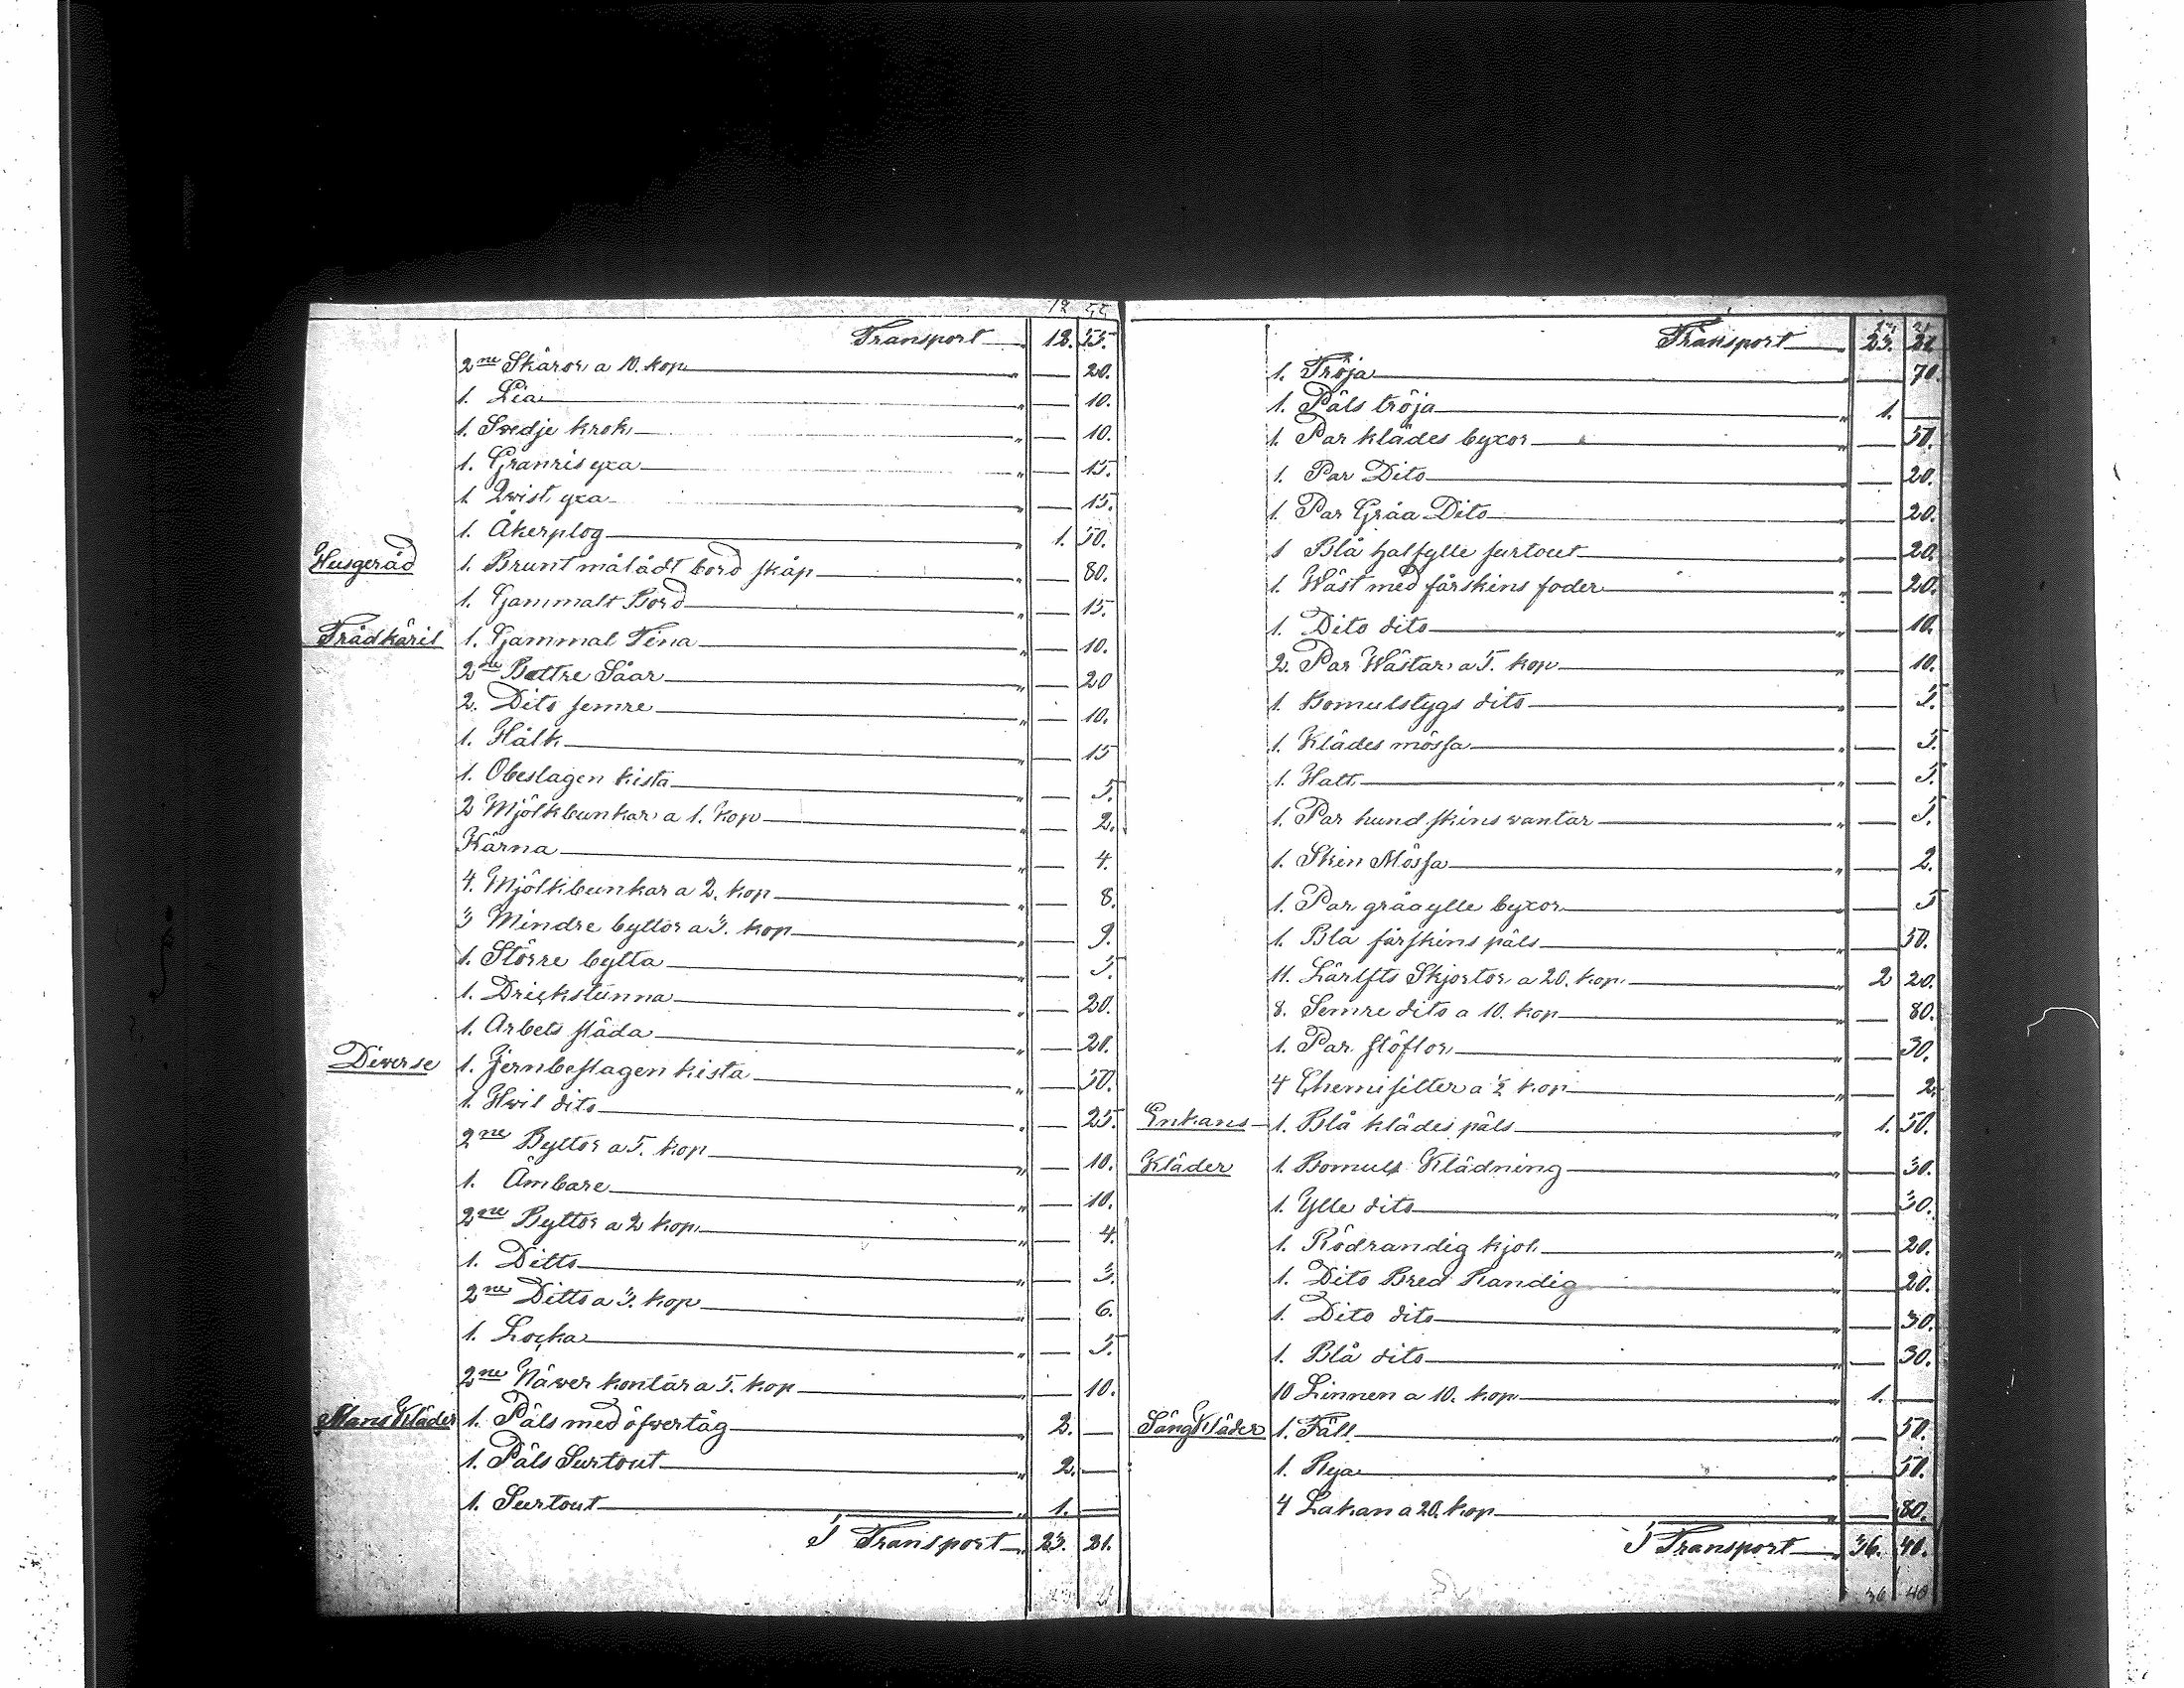 12 55
Transport 12. 55.
2ne Skäror a 10. kop — 20.
1. Lia — 10.
1. Svedje krok — 10.
1. Granris yxa — 15.
1 Qvist yxa — 15.
1. Åkerplog 1. 50.
Husgeråd 1. Brunt målådt bord skåp — 80.
1. Gammalt Bord — 15.
Trädkäril 1. Gammal Tina — 10.
2ne Bettre Såar — 20
2. Dito semre — 10.
1. Hålk — 15
1. Obeslagen kista — 5.
2 Mjölkbunkar a 1. kop — 2.
Kärna — 4.
4. Mjölkbunkar a 2. kop — 8.
3 Mindre byttor a 3. kop — 9.
1. Större bytta — 5.
1. Drickstunna — 20.
1. Arbets släda — 20.
Diverse 1. Jernbeslagen kista — 50.
1. Hwit dito — 25.
2ne Byttor a 5. kop — 10.
1. Ämbare — 10.
2ne Byttor a 2 kop — 4.
1. Ditto — 3.
2ne Ditto a 3. kop — 6.
1. Locka — 5.
2ne Näver kontar a 5. kop — 10.
Mans Kläder 1. Päls med öfvertåg 2. —
1. Päls Surtout 2. —
1. Surtout 1. —
I Transport 23. 21.
21
Transport 23. 21
1. Tröja — 70.
1. Päls tröja 1. —
1. Par klädes byxor — 50.
1. Par Dito — 20.
1. Par Gråa Dito — 20.
1 Blå halfylle surtout — 20.
1. Wäst med fårskins foder — 20.
1. Dito dito — 10.
2. Par Wästar a 5. kop — 10.
1. Bomulstygs dito — 5.
1. Klädes mössa — 5.
1. Hatt — 5.
1. Par hundskins vantar — 5.
1. Skin Mössa — 2.
1. Par gråa ylle byxor — 5
1. Blå fårskins päls — 50.
11. Lärfts Skjortor a 20. kop 2 20.
8. Semre dito a 10. kop — 80.
1. Par stöflor — 30.
4 Chemisetter a ½ kop — 2.
Enkans 1. Blå klädes päls 1. 50.
Kläder 1. Bomuls Klädning — 30.
1. Ylle dito — 30.
1. Rödrandig kjol — 20.
1. Dito Bred Randig — 20.
1. Dito dito — 30.
1. Blå dito — 30.
10 Linnen a 10. kop 1. —
Säng Kläder 1. Fäll — 50.
1. Rya — 50.
4 Lakan a 20. kop — 80.
I Transport 36. 40.
36 40